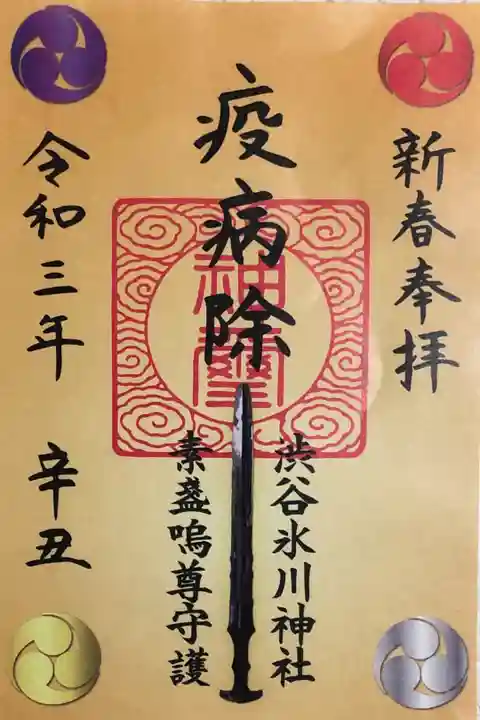 新春奉拝
疫病除
渋谷氷川神社
素盞嗚尊守護
令和三年 辛丑